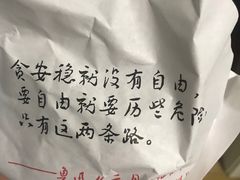 贪安稳就没有自由，
要自由就要历些危险
只有这两条路。